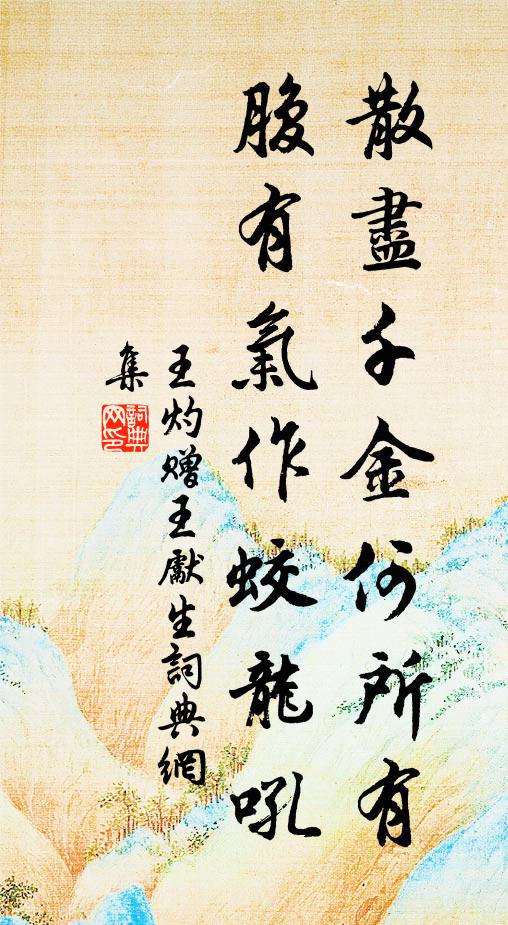 散盡千金何所有
腹有氣作蛟龍吼
王灼贈王獻生詞典網
集
詞典
网印